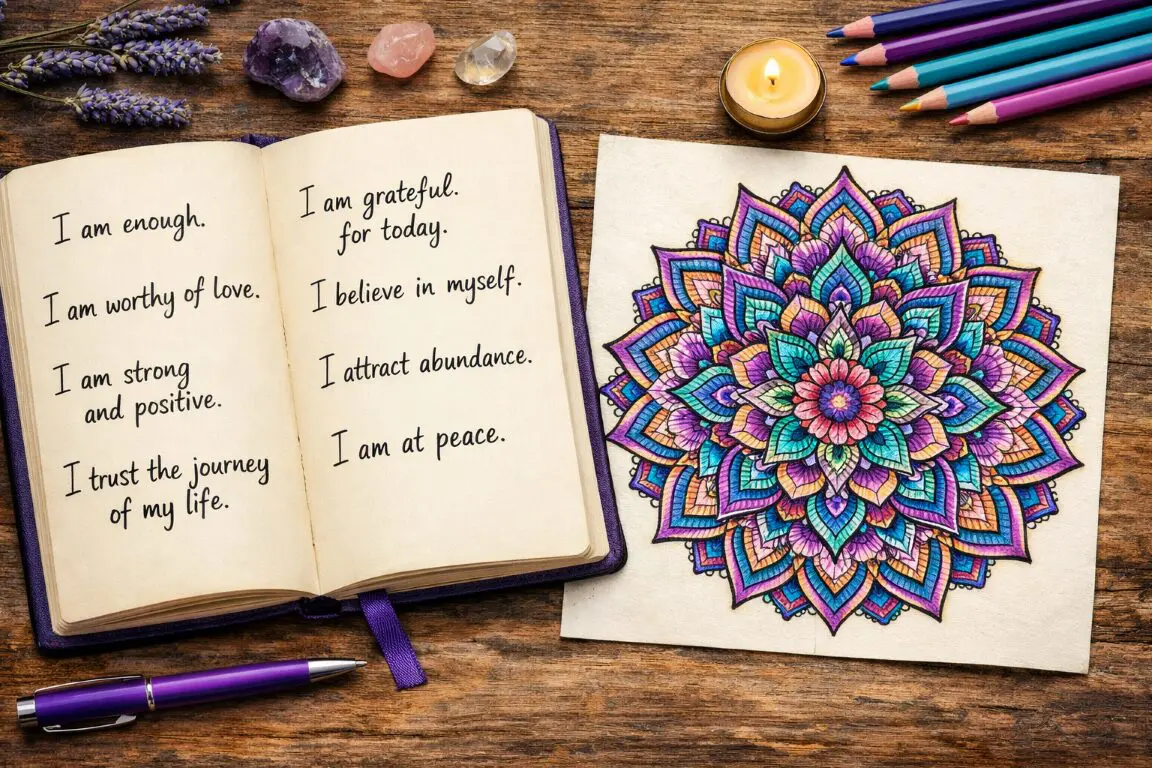 I am enough.
I am worthy of love.
I am strong
and positive.
I trust the journey
of my life.
I am grateful.
for today.
I believe in myself.
I attract abundance.
I am at peace.